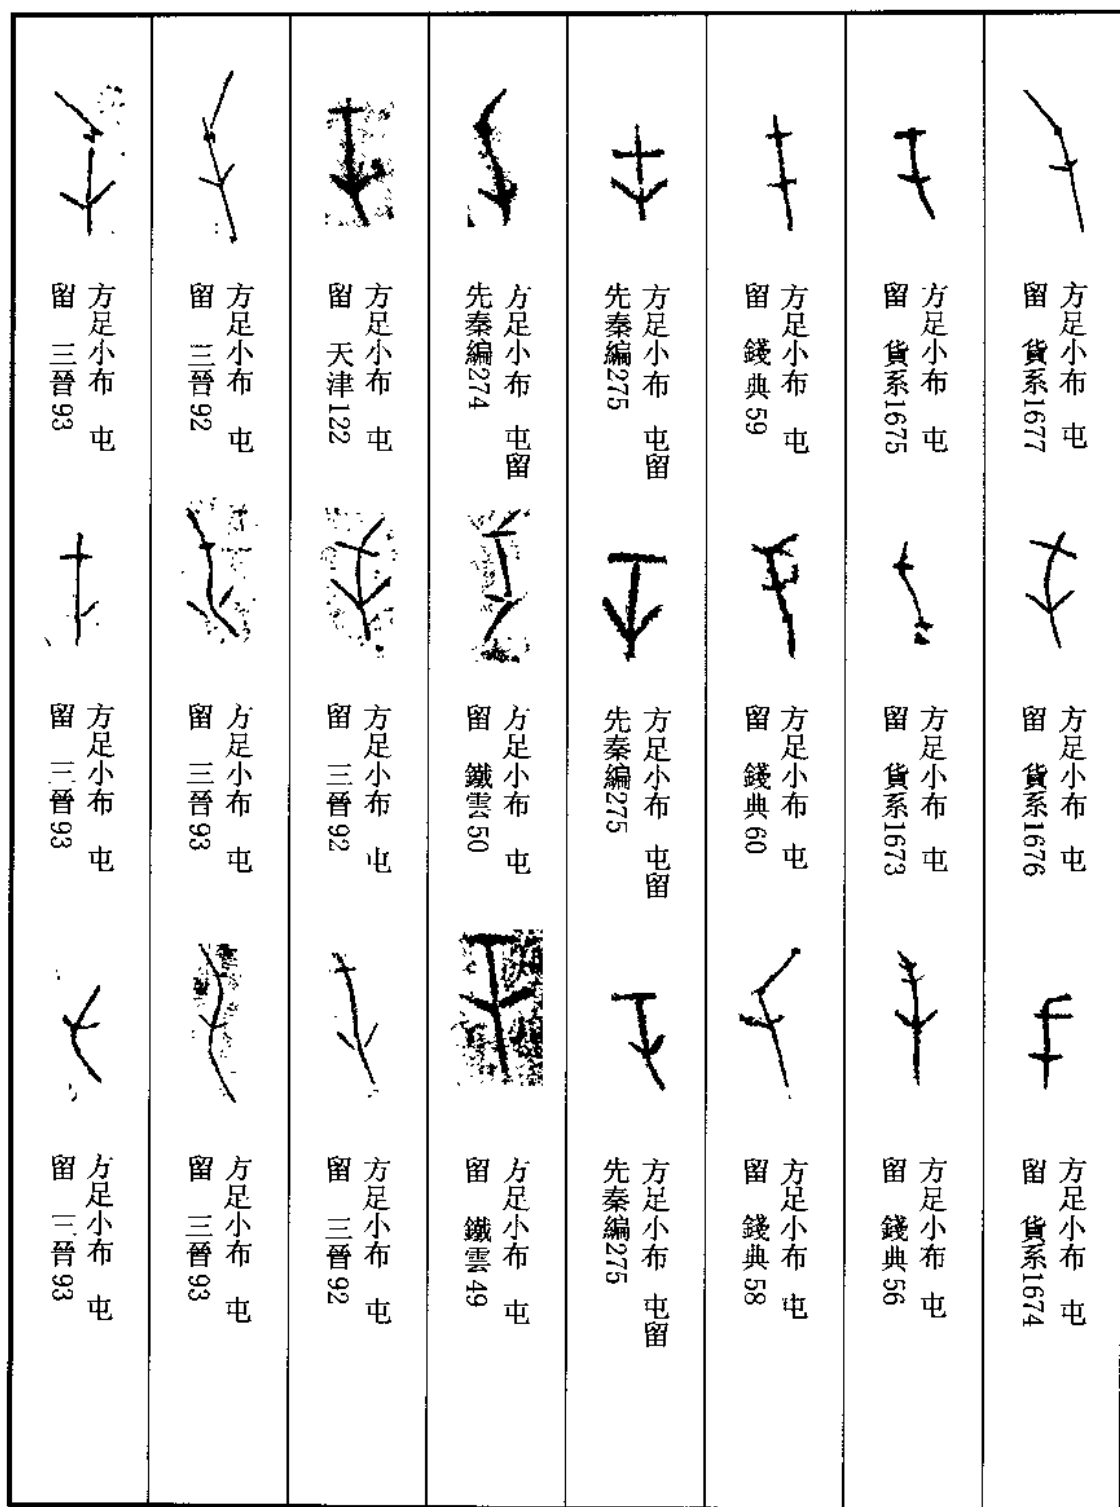 方足小布 屯
留 貨系1677
方足小布 屯
留 貨系1676
方足小布 屯
留 貨系1674
方足小布 屯
留 貨系1675
方足小布 屯
留 貨系1673
方足小布 屯
留 錢典56
方足小布 屯
留 錢典59
方足小布 屯
留 錢典60
方足小布 屯
留 錢典58
方足小布 屯留
先秦編275
方足小布 屯留
先秦編275
方足小布 屯留
先秦編275
方足小布 屯留
先秦編274
方足小布 屯
留 鐵雲50
方足小布 屯
留 鐵雲49
方足小布 屯
留 天津122
方足小布 屯
留 三晉92
方足小布 屯
留 三晉92
方足小布 屯
留 三晉92
方足小布 屯
留 三晉93
方足小布 屯
留 三晉93
方足小布 屯
留 三晉93
方足小布 屯
留 三晉93
方足小布 屯
留 三晉93